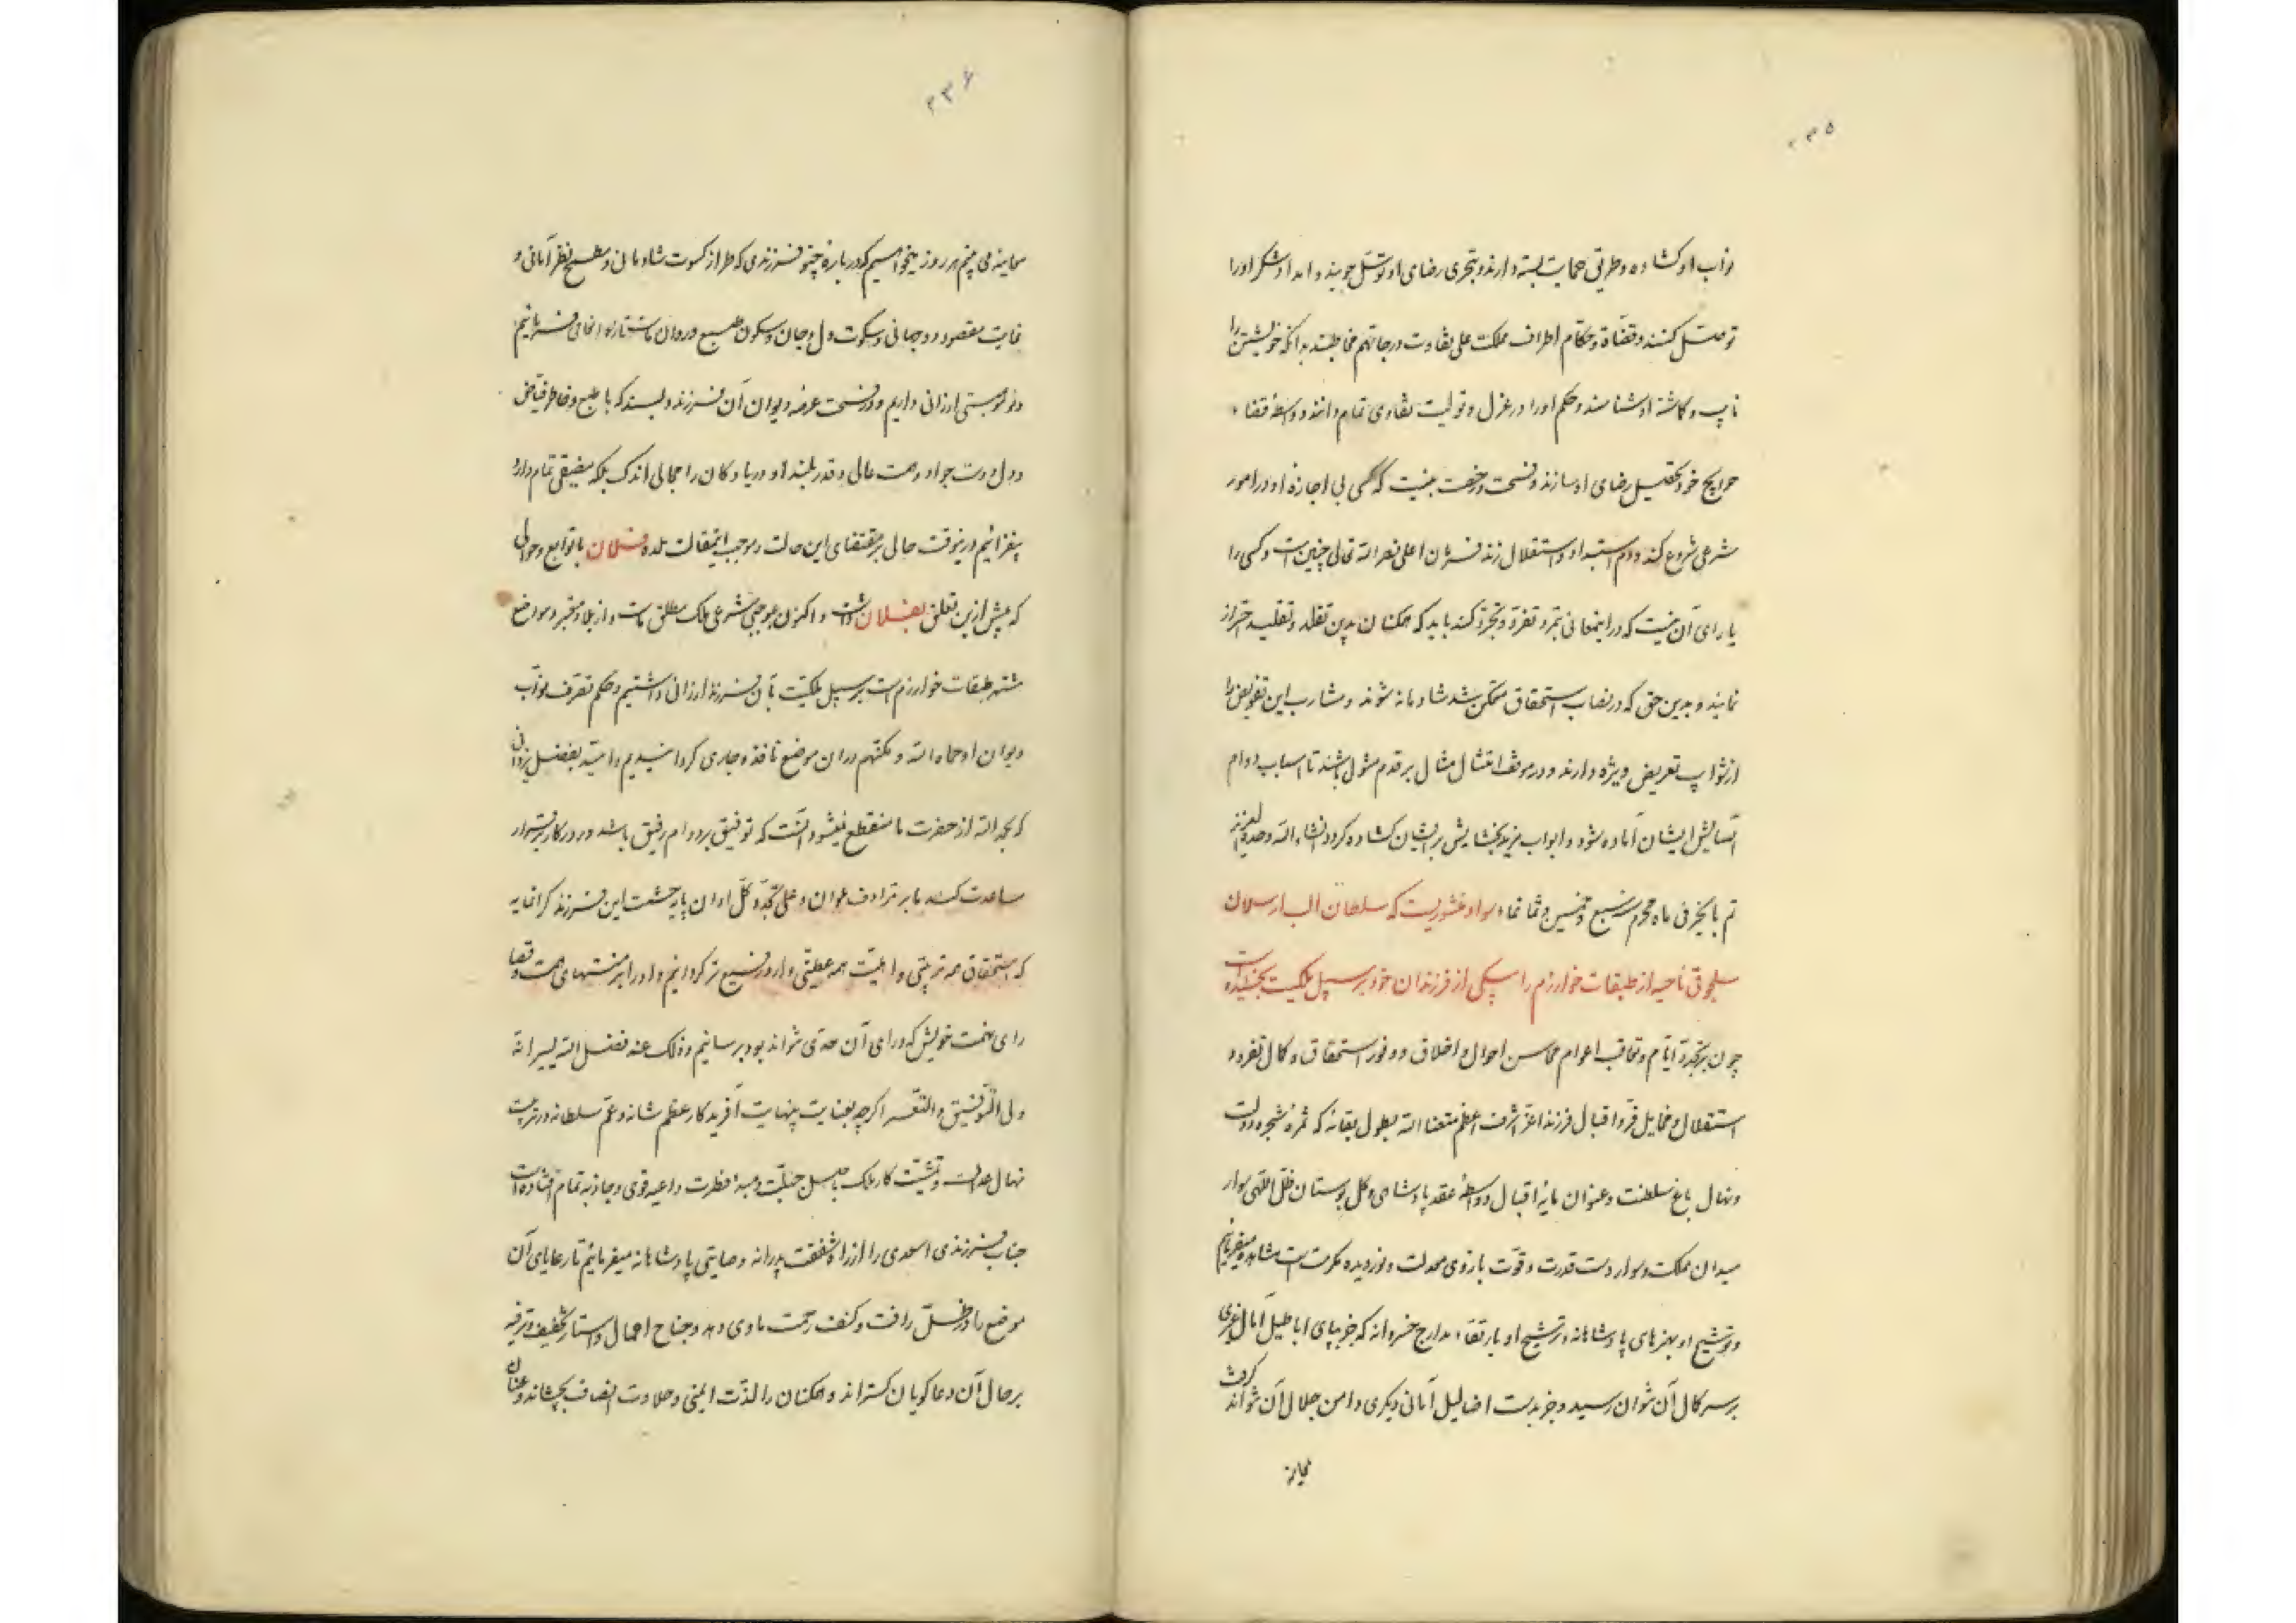 ۲۳۵
نواب او کشاده و طریق حمایت بسته دارند و بتحری رضای او توسّل جویند و امداد شکر او را
توسّل کنند و قضاة و حکّام اطراف مملکت علی تفاوت درجاتهم مخاطبند بدانکه خویشتن را
نایب و کماشتهٔ او شناسند و حکم او را در عزل و تولیت تمام دانند و واسطهٔ قضاء
حوایج خود تحصیل رضای او سازند و فسحت و رخصت نیست که کسی بی اجازهٔ او در امور
شرعی شروع کند و دم استبداد و استقلال زند فرمان اعلی نصره الله تعالی چنین است و کسی را
یارای آن نیست که درین معانی تمرّد و تفرّد و تجرّد کند باید که همکنان بدین تقلّد و تقلید احتراز
نمایند و بدین حق که در نصاب استحقاق متمکن شد شادمانه شوند و مشارب این تفویض را
از شوایب تعریض ویژه دارند و در موقف امتثال مثال بر قدم مثول باشند تا اسباب دوام
آسایش ایشان آماده شود و ابواب مزید بخشایش بر ایشان کشاده کردد انشاء الله وحده العزیز
تم بالخیر فی ماه محرم سنه سبع و خمسین و ثمانمائه سواد منشوریست که سلطان الب ارسلان
سلجوقی ناحیه از طبقات خوارزم را بیکی از فرزندان خود بر سبیل ملکیت بخشیده است
چون بر تجدّد ایّام و تعاقب اعوام محاسن احوال و اخلاق و وفور استحقاق و کمال تفرد و
استقلال و مخایل فرّ و اقبال فرزند اعزّ اشرف اعظم متعنا الله بطول بقائه که ثمرهٔ شجره دولت
و نهال باغ سلطنت و عنوان مایهٔ اقبال و واسطهٔ عقد پادشاهی و کل بوستان ظلّ اللهی سوار
میدان مملکت و سوار دست قدرت و قوّت بازوی معدلت و نور دیده مکرمت است مشاهده میفرمائیم
و توشیح او بهنرهای پادشاهانه و ترشیح او بارتقاء مدارج خسروانه که جز بپای اباطیل آمال دیگری
بر سر کمال آن نتوان رسید و جز بدست اضالیل آمانی دیگری دامن جلال آن نتواند کرفت
معاینه
۲۳۶
معاینه می بینم هر روز میخواهیم که درباره چنو فرزندی که طراز کسوت شادمانی و مطمح نظر آمانی و
غایت مقصود دو جهانی و سکوت دل و جان و سکون طبع و روان ماست تازه انعامی فرمائیم
و نو موهبتی ارزانی داریم و در فسحت عرصهٔ دیوان آن فرزند دلبند که با طبع و خاطر فیّاض
و دل و دست جواد و همت عالی و قدر بلند او دریا و کان را مجالی اندک بلکه مضیقی تمام دارد
بیفزائیم درینوقت حالی بر مقتضای این حالت و موجب این مقالت بلده فلان با توابع و حوالی
که پیش ازین تعلق بفلان داشت و اکنون بموجبی شرعی ملک مطلق ماست و از بلاد معتبر و مواضع
مشتهر طبقات خوارزم است بر سبیل ملکیّت بآن فرزند ارزانی داشتیم و حکم تصرّف نوّاب
دیوان او حماه الله و مکّنهم در آن موضع نافذ و جاری کردانیدیم و امّید بفضل یزدانی
که بحمد الله از حضرت ما منقطع نمیشود آنست که توفیق بر دوام رفیق باشد و روزکار برقرار
مساعدت کند تا بر ترادف عوان و علی تجدّد کلّ اوان پایهٔ حشمت این فرزند کرانمایه
که استحقاق همه تربیتی و اهلیّت همه عطیّتی دارد رفیع تر کردانیم و او را بر منتهای همت و قصا
رای نهمت خویش که ورای آن حدّی نتواند بود برسانیم و ذلک عند فضل الله یسیر انّه
ولی التّوفیق و التّیسیر اکرچه بعنایت بینهایت آفریدکار عظم شانه و عمّ سلطانه در تربیت
نهال عدالت و تمشیت کار ملک باصل جبلّت و مبدا فطرت داعیه قوی و جاذبه تمام افتاده است
جناب فرزندی اسعدی را از راه شفقت پدرانه وصایتی پادشاهانه میفرمائیم تا رعایای آن
موضع را در ظلّ رافت و کنف رحمت ماوی دهد و جناح اجمال و استار تخفیف و ترفیه
بر حال آن دعاکویان کستراند و همکنان را لذّت ایمنی و حلاوت انصاف بچشاند و عنان